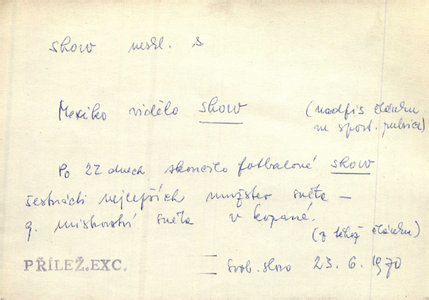 show neskl. s
Mexiko vidělo show (nadpis článku
ve sport. rubrice)
Po 22 dnech skončilo fotbalové show
šestnácti nejlepších mužstev světa –
9. mistrovství světa v kopané.
(z téhož článku)
PŘÍLEŽ.EXC. — Svob. slovo 23. 6. 1970